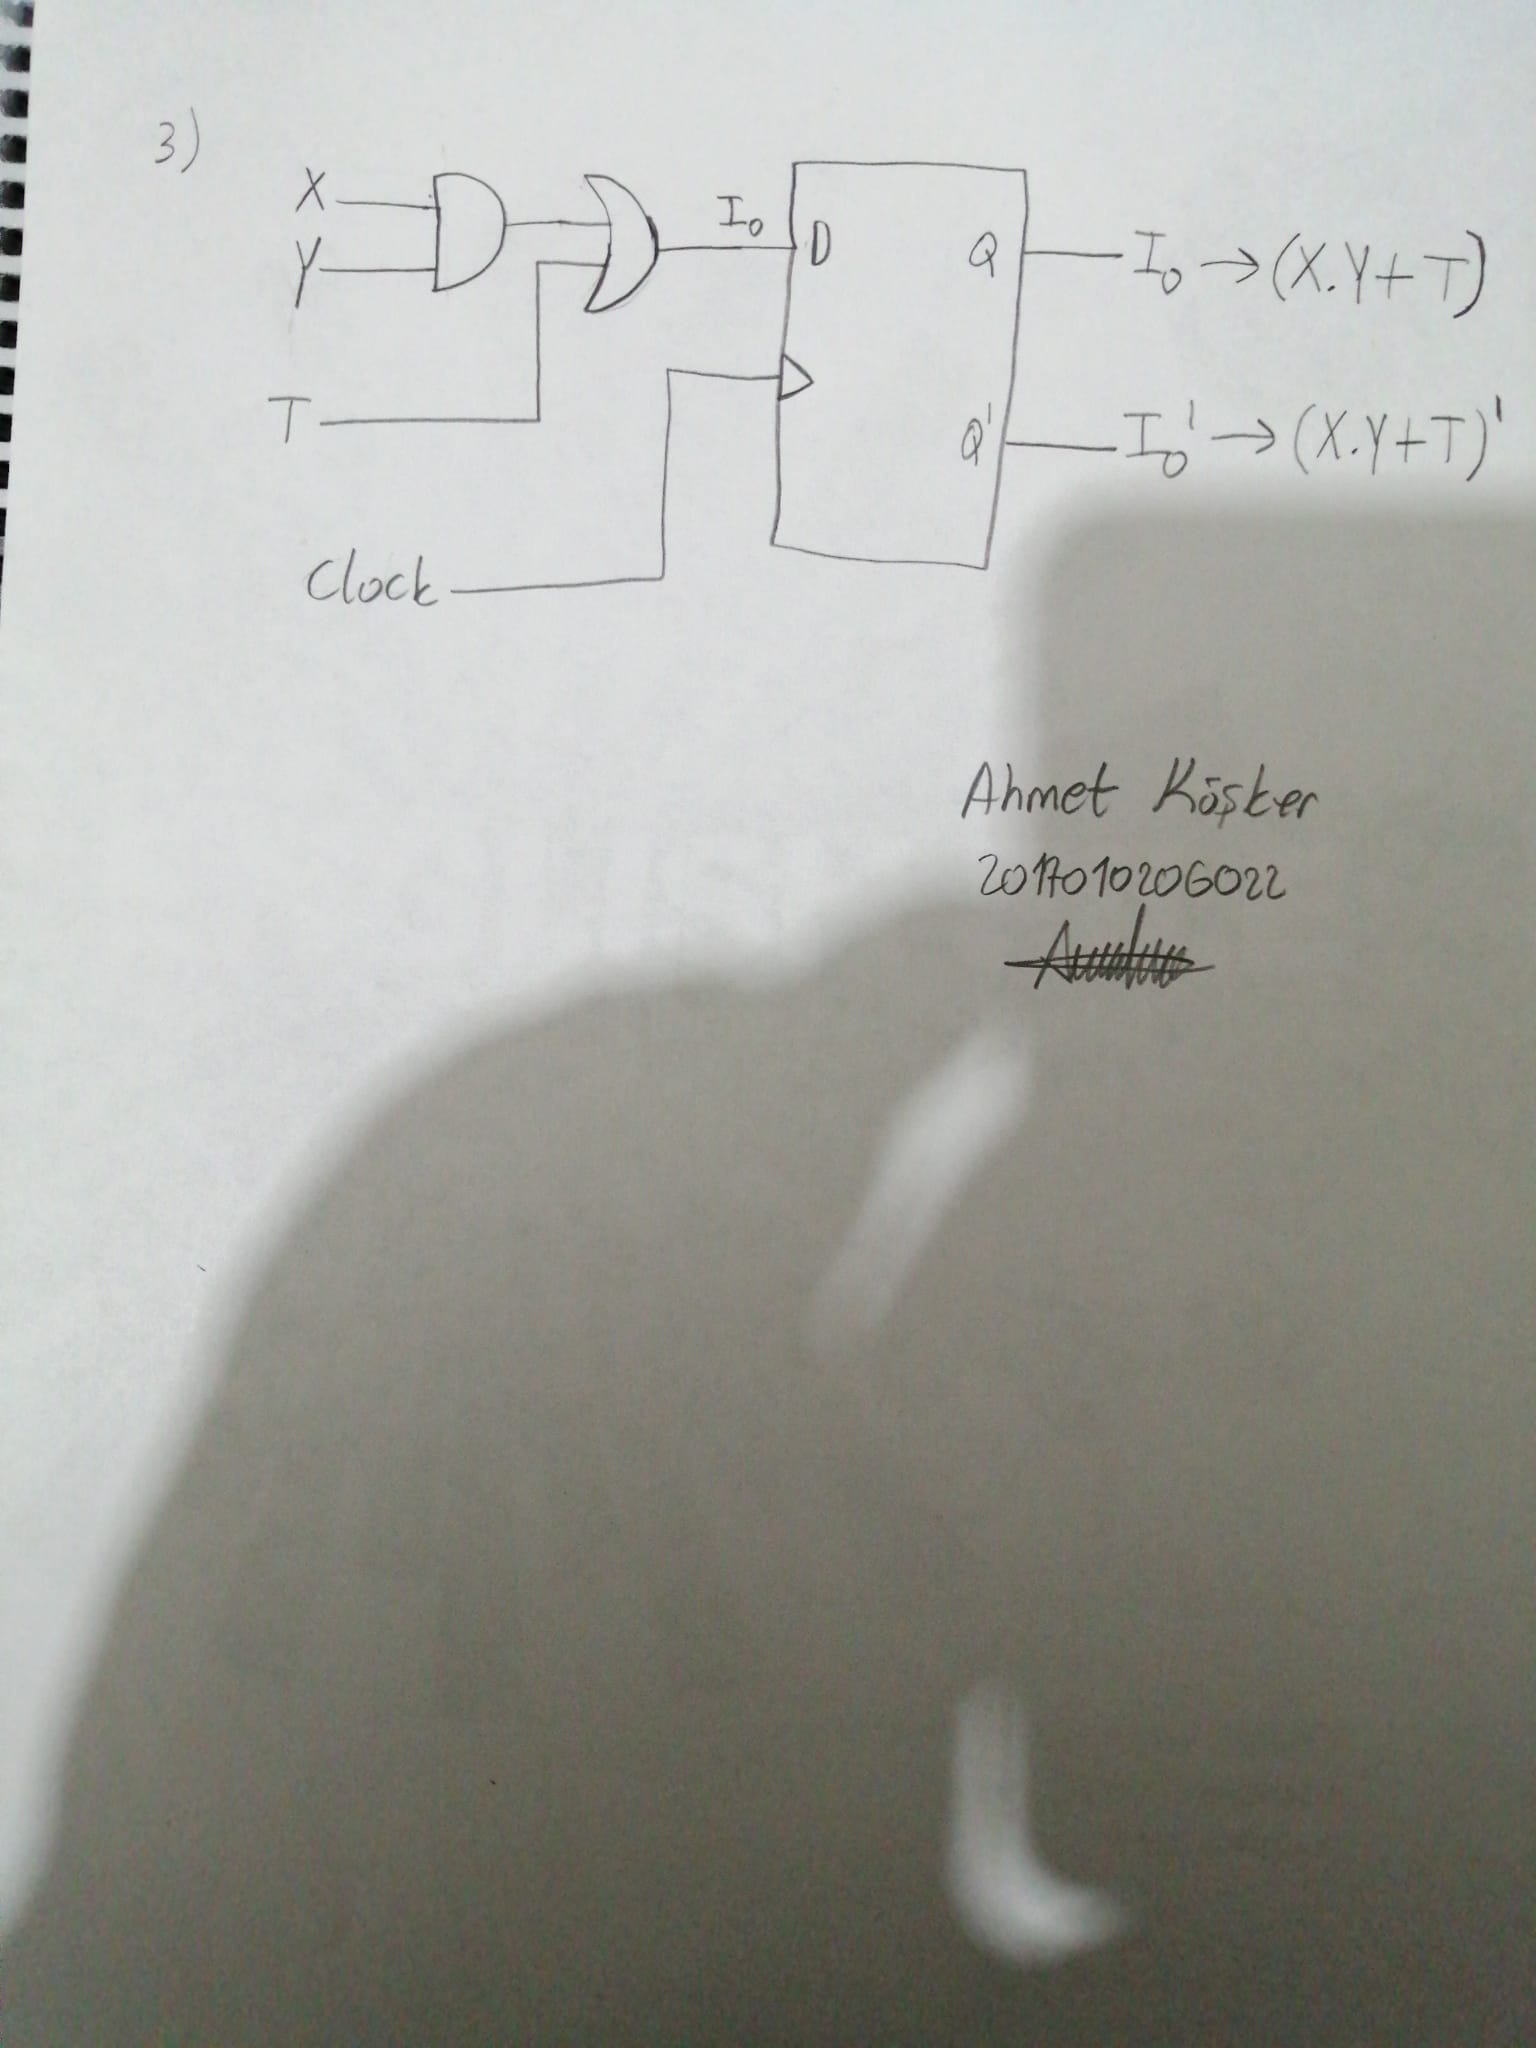 3)
X
Y
T
Clock
I₀
D
Q
Q'
I₀ → (X.Y+T)
I₀' → (X.Y+T)'
Ahmet Köşker
2017010206022